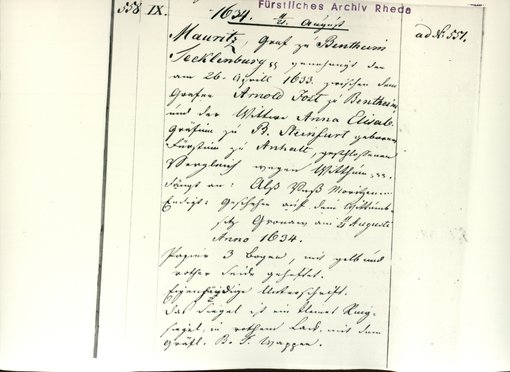 Fürstliches Archiv Rheda
558 IX.
1634. August
ad N. 551.
Mauritz, Graf zu Bentheim
Tecklenburg genehmigt den
am 26. Aprill 1633. zwischen dem
Grafen Arnold Jost zu Bentheim
und der Wittwe Anna Elisab.
Gräfinn zu B. Steinfurt geborenen
Fürstinn zu Anhalt, geschlossenen
Vergleich wegen Witthum
Fängt an: Alß
Endigt: Geschehen auf dem
Gronaw am Augusti
Anno 1634.
Papier 3 Bogen, mit gelb und
rother Seide geheftet.
Eigenhändige Unterschrift.
Das Siegel ist ein kleines Ring-
siegel in rothem Lack mit dem
gräfl. B. T. Wappen.